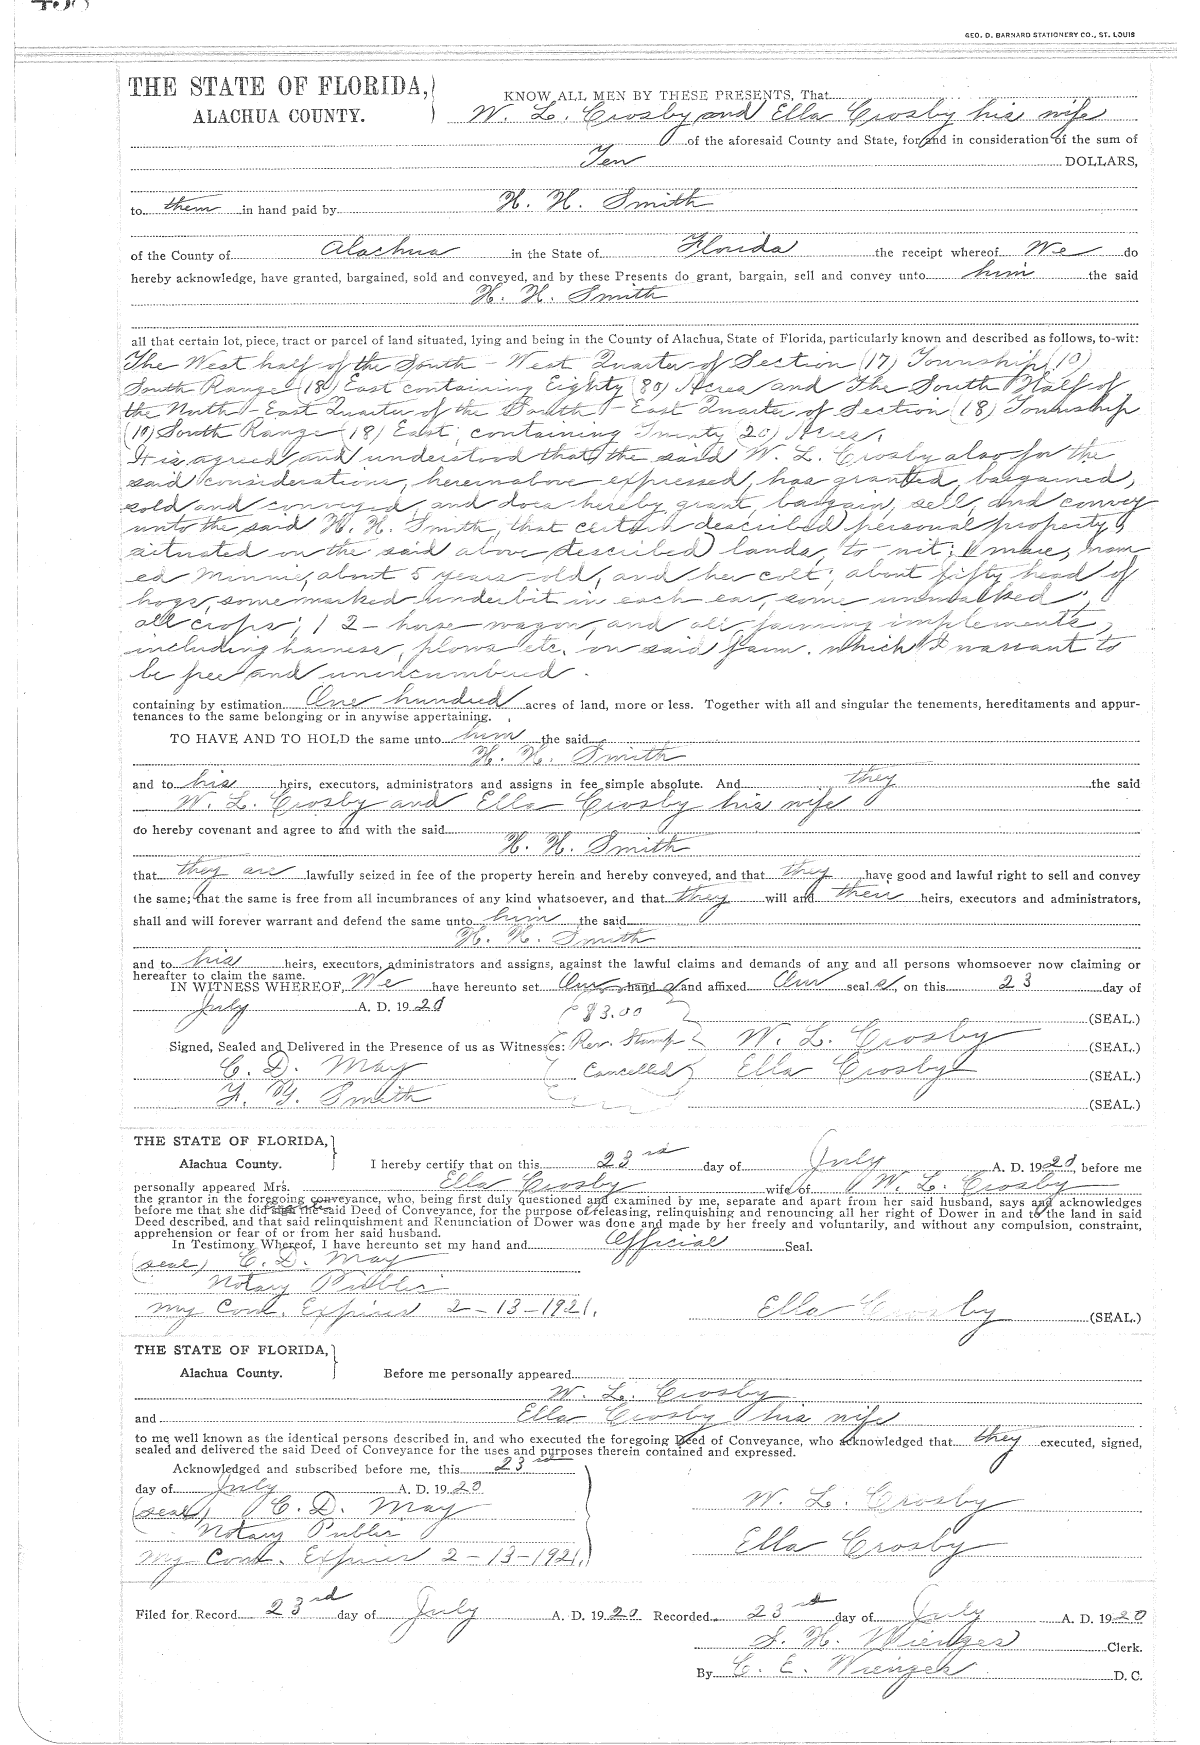 GEO. D. BARNARD STATIONERY CO., ST. LOUIS
THE STATE OF FLORIDA,
ALACHUA COUNTY.
KNOW ALL MEN BY THESE PRESENTS, That
W. L. Crosby and Ella Crosby his wife
of the aforesaid County and State, for and in consideration of the sum of
Ten DOLLARS,
to them in hand paid by H. H. Smith
of the County of Alachua in the State of Florida the receipt whereof We do
hereby acknowledge, have granted, bargained, sold and conveyed, and by these Presents do grant, bargain, sell and convey unto him the said
H. H. Smith
all that certain lot, piece, tract or parcel of land situated, lying and being in the County of Alachua, State of Florida, particularly known and described as follows, to-wit:
The West half of the South-West Quarter of Section (17) Township (10)
South Range (18) East containing Eighty (80) Acres and The South Half of
the North-East Quarter of the South-East Quarter of Section (18) Township
(10) South Range (18) East, containing Twenty (20) Acres.
It is agreed and understood that the said W. L. Crosby also for the
said considerations, hereinabove expressed, has granted, bargained,
sold and conveyed, and does hereby grant, bargain, sell, and convey
unto the said H. H. Smith, that certain described personal property,
situated on the said above described lands, to-wit; 1 mare, nam
ed Minnie, about 5 years old, and her colt; about fifty head of
hogs, some marked underbit in each ear, some unmarked;
all crops; 1 2-horse wagon, and all farming implements,
including harness, plows etc. on said farm. which I warrant to
be free and unincumbered.
containing by estimation One hundred acres of land, more or less. Together with all and singular the tenements, hereditaments and appur-
tenances to the same belonging or in anywise appertaining.
TO HAVE AND TO HOLD the same unto him the said
H. H. Smith
and to his heirs, executors, administrators and assigns in fee simple absolute. And they the said
W. L. Crosby and Ella Crosby his wife
do hereby covenant and agree to and with the said
H. H. Smith
that they are lawfully seized in fee of the property herein and hereby conveyed, and that they have good and lawful right to sell and convey
the same; that the same is free from all incumbrances of any kind whatsoever, and that they will and their heirs, executors and administrators,
shall and will forever warrant and defend the same unto him the said
H. H. Smith
and to his heirs, executors, administrators and assigns, against the lawful claims and demands of any and all persons whomsoever now claiming or
hereafter to claim the same.
IN WITNESS WHEREOF, We have hereunto set Our hand s and affixed Our seal s, on this 23 day of
July A. D. 1920
$3.00
(SEAL.)
Signed, Sealed and Delivered in the Presence of us as Witnesses: Rev. Stamp W. L. Crosby (SEAL.)
C. D. May Cancelled Ella Crosby (SEAL.)
Smith (SEAL.)
THE STATE OF FLORIDA,
Alachua County. I hereby certify that on this 23rd day of July A. D. 1920, before me
personally appeared Mrs. Ella Crosby wife of W. L. Crosby
the grantor in the foregoing conveyance, who, being first duly questioned and examined by me, separate and apart from her said husband, says and acknowledges
before me that she did said Deed of Conveyance, for the purpose of releasing, relinquishing and renouncing all her right of Dower in and to the land in said
Deed described, and that said relinquishment and Renunciation of Dower was done and made by her freely and voluntarily, and without any compulsion, constraint,
apprehension or fear of or from her said husband.
In Testimony Whereof, I have hereunto set my hand and Official Seal.
(seal) C. D. May
Notary Public
My Com. Expires 2-13-1921. Ella Crosby (SEAL.)
THE STATE OF FLORIDA,
Alachua County. Before me personally appeared
W. L. Crosby
and Ella Crosby his wife
to me well known as the identical persons described in, and who executed the foregoing Deed of Conveyance, who acknowledged that they executed, signed,
sealed and delivered the said Deed of Conveyance for the uses and purposes therein contained and expressed.
Acknowledged and subscribed before me, this 23rd
day of July A. D. 1920
(seal) C. D. May W. L. Crosby
Notary Public
My Com. Expires 2-13-1921. Ella Crosby
Filed for Record 23rd day of July A. D. 1920 Recorded 23rd day of July A. D. 1920
S. H. Wienges Clerk.
By C. E. Wienges D. C.